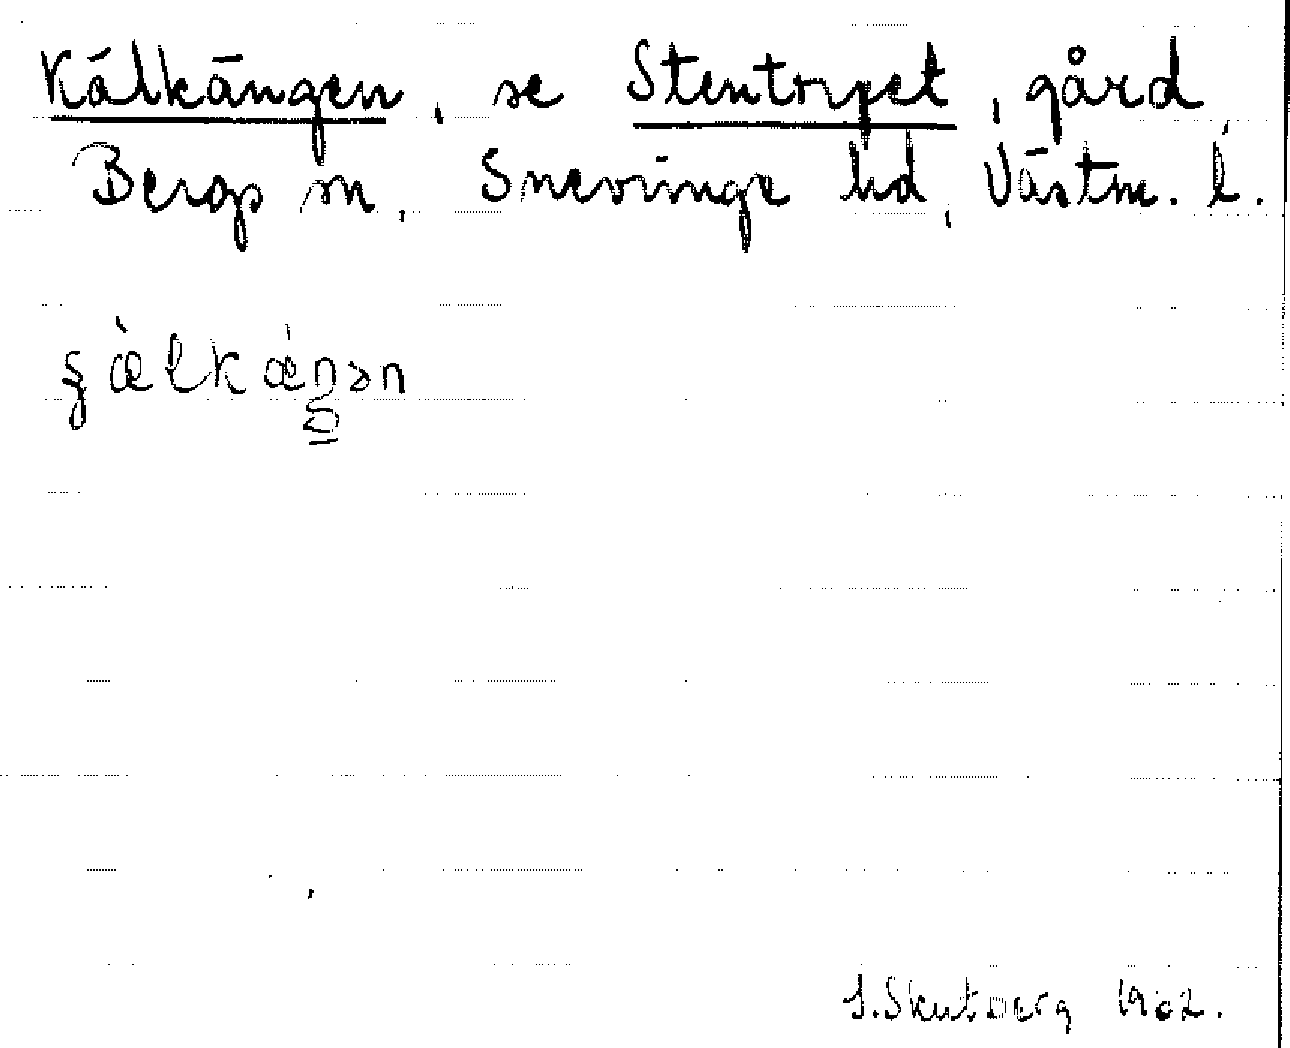 Kälkängen, se Stentorpet, gård
Bergs sn, Snevringe hd, Västm. l.
S. Skutberg 1962.